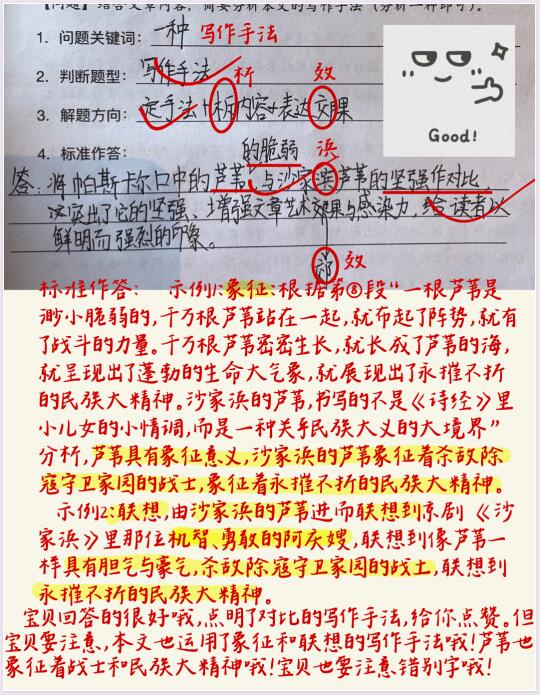 【问题】结合文章内容，简要分析本文的写作手法（分析一种即可）。
1. 问题关键词：一种 写作手法
2. 判断题型：写作手法 析 效
3. 解题方向：定手法+折内容+表达交果
4. 标准作答： 的脆弱 浜
答：将帕斯卡尔口中的芦苇与沙家滨芦苇的坚强作对比，
突出了它的坚强、增强文章艺术郊果与感染力，给读者以
鲜明而强烈的印象。
郊 效
Good!
标准作答： 示例1:象征:根据第⑧段“一根芦苇是
渺小脆弱的,千万根芦苇站在一起,就布起了阵势,就有
了战斗的力量。千万根芦苇密密生长,就长成了芦苇的海,
就呈现出了蓬勃的生命大气象,就展现出了永摧不折
的民族大精神。沙家浜的芦苇,书写的不是《诗经》里
小儿女的小情调,而是一种关乎民族大义的大境界”
分析,芦苇具有象征意义,沙家浜的芦苇象征着杀敌除
寇守卫家园的战士,象征着永摧不折的民族大精神。
示例2:联想,由沙家浜的芦苇进而联想到京剧《沙
家浜》里那位机智、勇敢的阿庆嫂,联想到像芦苇一
样具有胆气与豪气,杀敌除寇守卫家园的战士,联想到
永摧不折的民族大精神。
宝贝回答的很好哦,点明了对比的写作手法,给你点赞。但
宝贝要注意,本文也运用了象征和联想的写作手法哦!芦苇也
象征着战士和民族大精神哦!宝贝也要注意错别字哦!